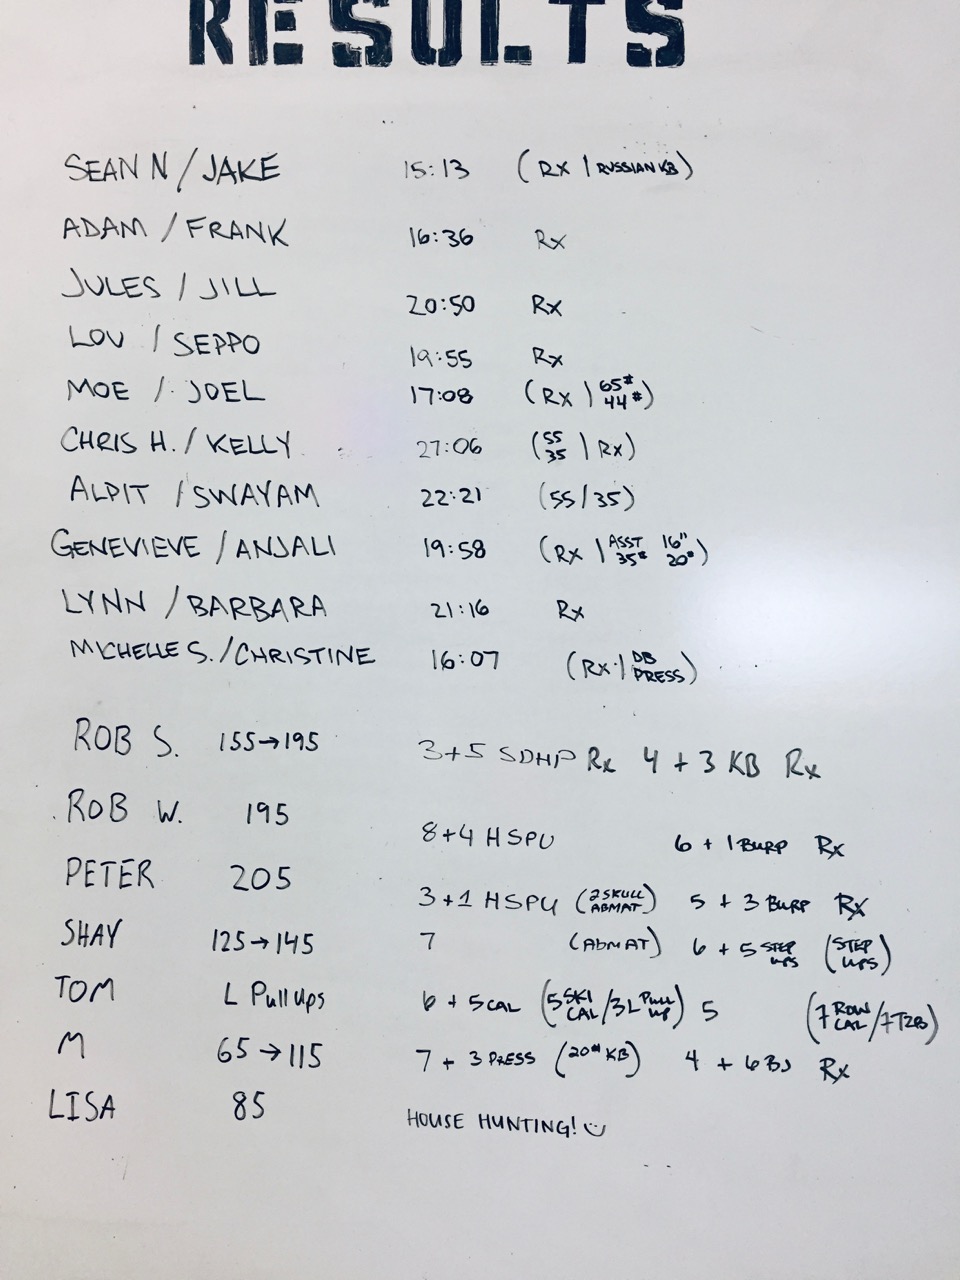 RESULTS
SEAN N / JAKE 15:13 (Rx | RUSSIAN KB)
ADAM / FRANK 16:36 Rx
JULES / JILL 20:50 Rx
LOU / SEPPO 19:55 Rx
MOE / JOEL 17:08 (Rx | 65# 44#)
CHRIS H. / KELLY 27:06 (55 35 | Rx)
ALPIT / SWAYAM 22:21 (55/35)
GENEVIEVE / ANJALI 19:58 (Rx | ASST 35# 16" 20#)
LYNN / BARBARA 21:16 Rx
MICHELLE S. / CHRISTINE 16:07 (Rx | DB PRESS)
ROB S. 155→195 3+5 SDHP Rx 4 + 3 KB Rx
ROB W. 195 8+4 HSPU 6 + 1 BURP Rx
PETER 205 3+1 HSPU (2 SKULL ABMAT) 5 + 3 BURP Rx
SHAY 125→145 7 (ABMAT) 6 + 5 STEP UPS (STEP UPS)
TOM L Pull Ups 6 + 5 CAL (5 SKI CAL/3 L Pull up) 5 (7 ROW CAL/7 T2B)
M 65→115 7 + 3 PRESS (20# KB) 4 + 6 BJ Rx
LISA 85 HOUSE HUNTING! ☺